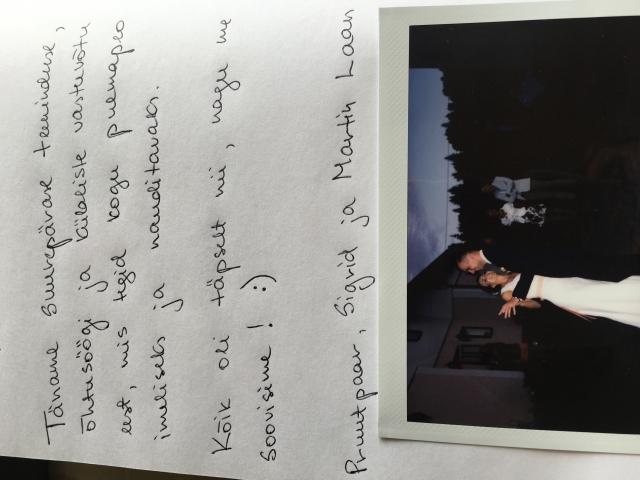 Täname suurepärase teeninduse,
õhtusöögi ja külaliste vastuvõtu
eest, mis tegid kogu pulmapäeva
imeliseks ja nauditavaks.
Kõik oli täpselt nii, nagu me
soovisime! :)
Pruutpaar, Sigrid ja Martin Laan